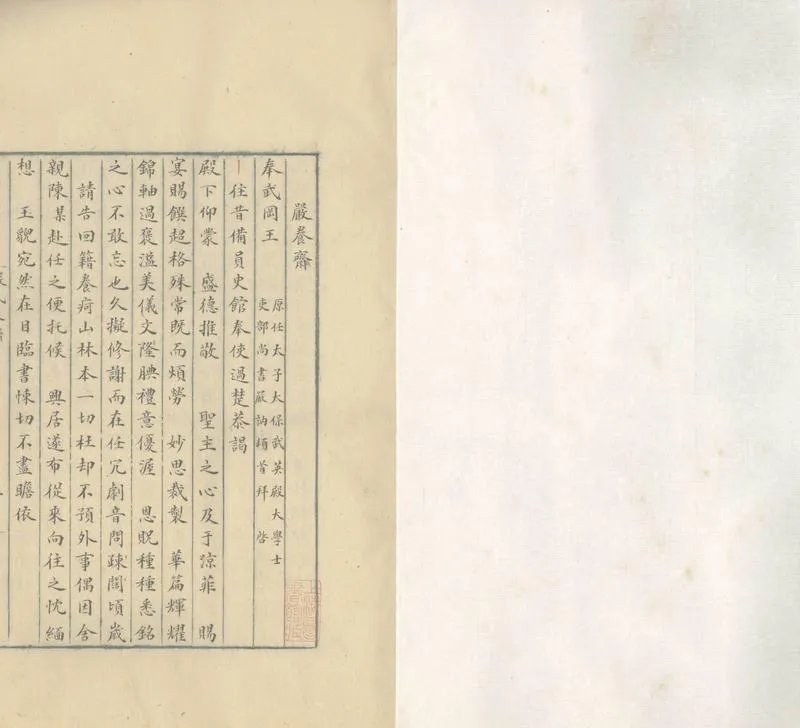 嚴養齋
奉武岡王
原任太子太保武英殿大學士
吏部尚書嚴訥頓首拜 啓
往昔備員史館奉使過楚恭謁
殿下仰蒙 盛德推敬 聖主之心及于涼菲 賜
宴賜饌超格殊常既而煩勞 妙思裁製 華篇輝耀
錦軸過褒溢美儀文隆腆禮意優渥 恩貺種種悉銘
之心不敢忘也久擬修謝而在任冗劇音問疎闊頃歲
請告回籍養疴山林本一切杜却不預外事偶因舍
親陳某赴任之便托候 興居遂布從來向往之忱緬
想 玉貌宛然在目臨書悚切不盡瞻依